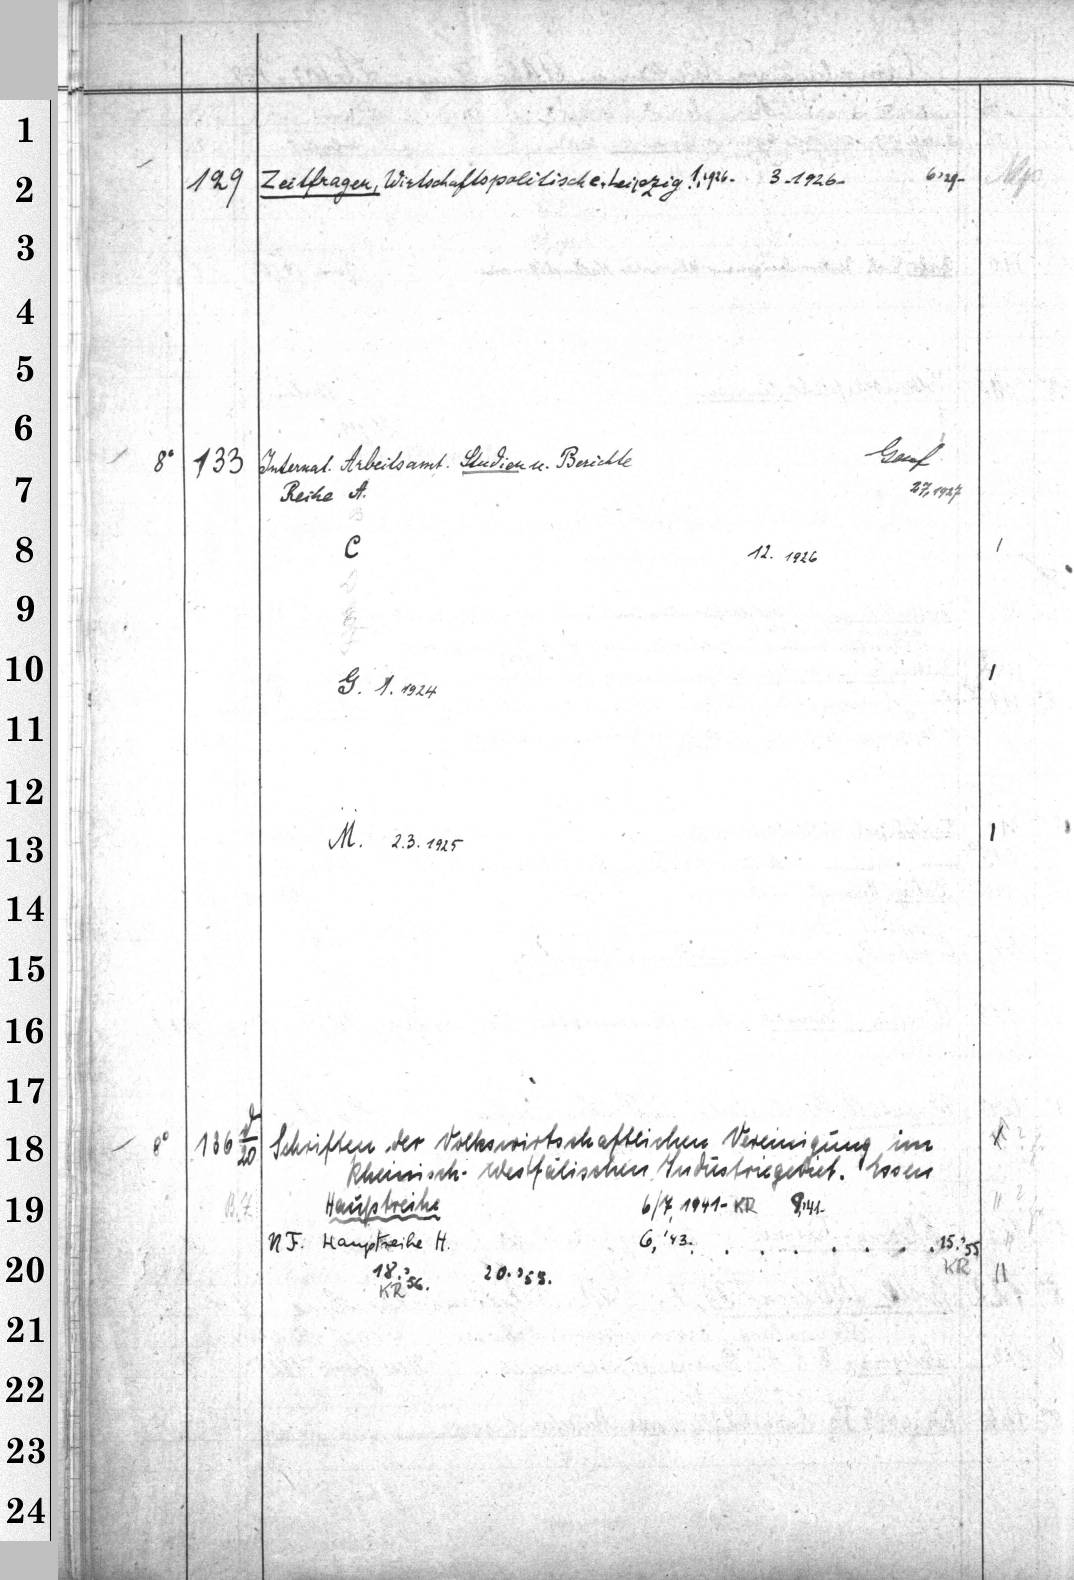 1
2
129 Zeitfragen, Wirtschaftspolitische. Leipzig 1,1926- 3-1926- 6,29-
3
4
5
6
8° 133 Internat. Arbeitsamt. Studien u. Berichte Genf
7
Reihe A. 27,1927
8
C 12. 1926 1
9
10
G. 1. 1924 1
11
12
13
M. 2.3. 1925 1
14
15
16
17
18
8° 136 20 Schriften der Volkswirtschaftlichen Vereinigung im
Rheinisch-Westfälischen Industriegebiet. Essen
19
Hauptreihe 6/7, 1941- KR 8,41-
NF. Hauptreihe H. 6,'43. . . . . . . . . 15.'55
20
18.'56. 20.'58. KR II
KR
21
22
23
24